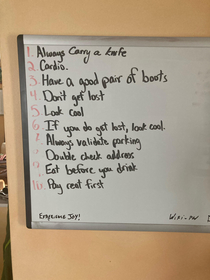 1. Always Carry a knife
2. Cardio.
3. Have a good pair of boots
4. Don't get lost
5 Look cool
6. If you do get lost, look cool.
Always validate parking
Double check address
Eat before you drink
10. Pay rent first
Experience Joy!